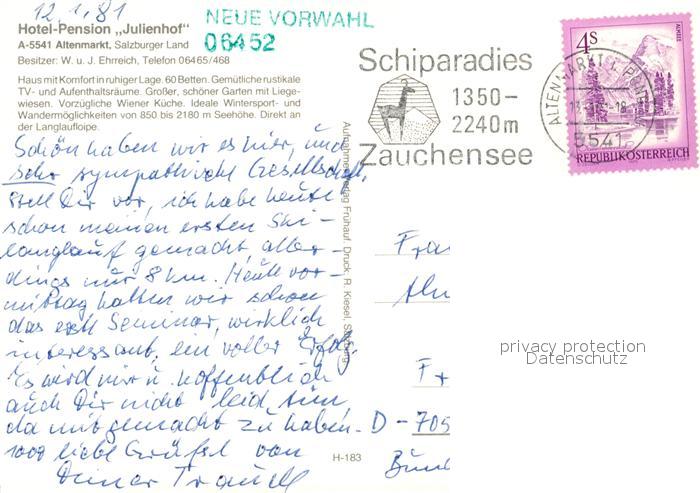 12.1.81
Hotel-Pension „Julienhof"
A-5541 Altenmarkt, Salzburger Land
Besitzer: W. u. J. Ehrreich, Telefon 06465/468
NEUE VORWAHL
06452
Haus mit Komfort in ruhiger Lage. 60 Betten. Gemütliche rustikale
TV- und Aufenthaltsräume. Großer, schöner Garten mit Liege-
wiesen. Vorzügliche Wiener Küche. Ideale Wintersport- und
Wandermöglichkeiten von 850 bis 2180 m Seehöhe. Direkt an
der Langlaufloipe.
Schiparadies
1350-
2240m
Zauchensee
4S
ALTENMARKT I. PONG
5541
REPUBLIK ÖSTERREICH
Schön haben wir es hier, und
sehr sympathische Gesellschaft,
stell Dir vor, ich habe heute
schon meinen ersten Ski-
langlauf gemacht, aller-
dings nur 8 km. Heute vor-
mittag hatten wir schon
das erste Seminar, wirklich
interessant, ein voller Erfolg.
Es wird mir u. hoffentlich
auch Dir nicht leid tun
da mitgemacht zu haben.
1000 liebe Grüße von
Deiner Traudl
Aufnahme Verlag Frühauf. Druck. R. Kiesel, Salzburg
H-183
Fra
Fr
D - 705
Bun
privacy protection
Datenschutz